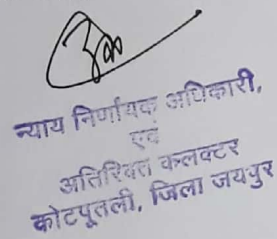 न्याय निर्णायक अधिकारी,
एवं
अतिरिक्त कलक्टर
कोटपूतली, जिला जयपुर